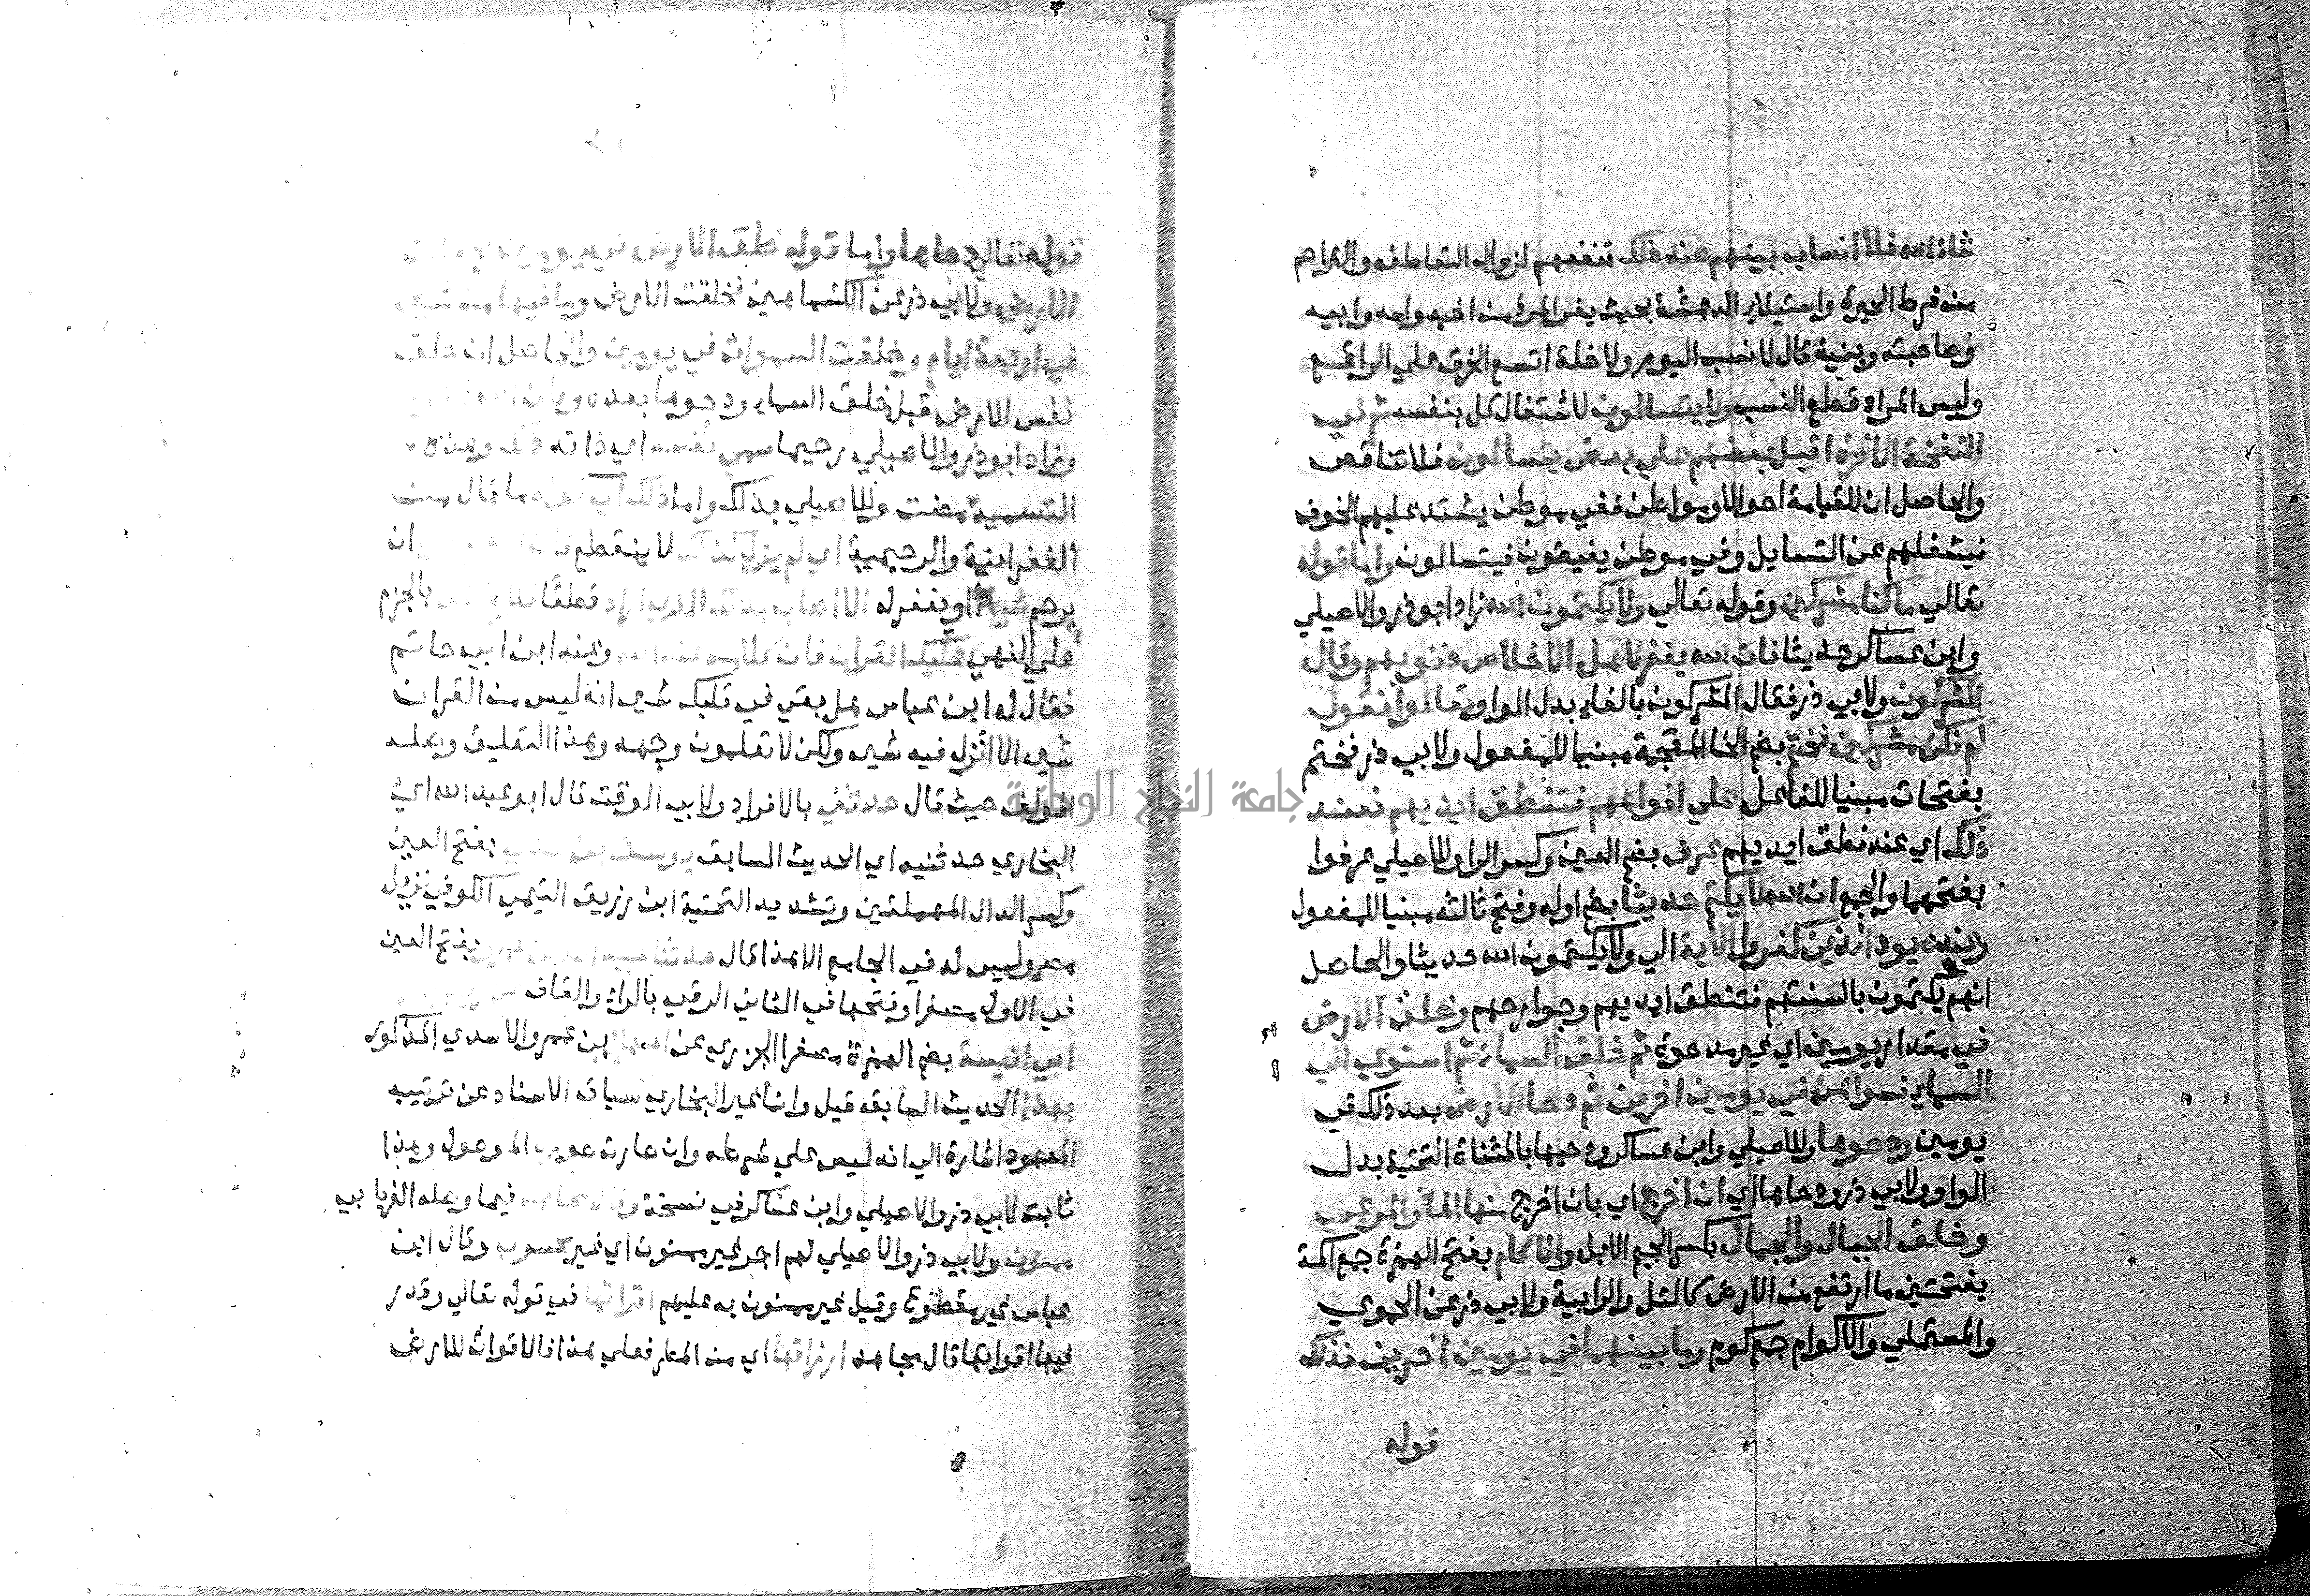 شاء الله فلا انساب بينهم عند ذلك تنفعهم لزوال التعاطف والتراحم
من فرط الحيرة واستيلاء الدهشة بحيث يفر المرء من اخيه وامه وابيه
وصاحبته وبنيه قال لا نسب اليوم ولا خلة اتسع الخرق علي الراقع
وليس المراد قطع النسب ولا يتسالون لاشتغال كل بنفسه ثم في
النفخة الاخرة اقبل بعضهم علي بعض يتسالون فلا تناقض
والحاصل ان للقيامة احوالا ومواطن ففي موطن يشتد عليهم الخوف
فيشغلهم عن التسايل وفي موطن يفيقون فيتسالون واما قوله
تعالي ما كنا مشركين وقوله تعالي ولا يكتمون الله زاد ابو ذر والاصيلي
وابن عساكر حديثا فان الله يغفر لاهل الاخلاص ذنوبهم وقال
المشركون ولابي ذر فقال المشركون بالفاء بدل الواو تعالوا نقول
لم نكن مشركين فختم بضم الخا المعجمة مبنيا للمفعول ولابي ذر فختم
بفتحات مبنيا للفاعل علي افواههم فتنطق ايديهم فعند
ذلك اي عند نطق ايديهم عرف بضم العين وكسر الرا وللاصيلي عرفوا
بفتحهما والجمع ان الله لا يكتم حديثا بضم اوله وفتح ثالثه مبنيا للمفعول
وعنده يود الذين كفروا الاية الي ولا يكتمون الله حديثا والحاصل
انهم يكتمون بالسنتهم فتنطق ايديهم وجوارحهم وخلق الارض
في مقدار يومين اي غير مدحوة ثم خلق السماء ثم استوي الي
السماء فسواهن في يومين اخرين ثم دحا الارض بعد ذلك في
يومين ودحوها وللاصيلي وابن عساكر ودحيها بالمثناة التحتية بدل
الواو ولابي ذر ودحاها اي ان اخرج اي بان اخرج منها الماء والمرعي
وخلق الجبال والجمال بكسر الجيم الابل والاكام بفتح الهمزة جمع اكمة
بفتحتين ما ارتفع من الارض كالتل والرابية ولابي ذر عن الحموي
والمستملي والاكوام جمع كوم وما بينهما في يومين اخرين فذلك
قوله
قوله تعالي دحاها واما قوله خلق الارض في يومين
الارض ولابي ذر عن الكشميهني فخلقت الارض وما فيها من شيء
في اربعة ايام وخلقت السموات في يومين والحاصل ان خلق
نفس الارض قبل خلق السماء ودحوها بعده وكان الله
وزاد ابو ذر والاصيلي رحيما سمي نفسه اي ذاته ذلك وهذه
التسمية مضت وللاصيلي بذلك واما ذلك اي ما قال من
الغفرانية والرحيمية اي لم يزل كذلك لا ينقطع فان ان
يرحم شيا او يغفر له الا اصاب به الذي اراد قطعا بالجزم
علي النهي عليك القران فان كلا من عند الله وعند ابن ابي حاتم
فقال له ابن عباس هل بقي في قلبك شيء انه ليس من القران
شيء الا انزل فيه شيء ولكن لا تعلمون وجهه وهذا التعليق وصله
المولف حيث قال حدثني بالافراد ولابي الوقت قال ابو عبد الله اي
البخاري حدثنيه اي الحديث السابق يوسف بن عدي بفتح العين
وكسر الدال المهملتين وتشديد التحتية ابن زريق التيمي الكوفي نزيل
مصر وليس له في الجامع الا هذا قال حدثنا عبيد الله بن عمرو بفتح العين
في الاول مصغرا وفتحها في الثاني الرقي بالراء والقاف
ابي انيسة بضم الهمزة مصغرا الجزري عن المنهال بن عمرو الاسدي المذكور
بهذا الحديث السابق قيل وانما غير البخاري سياق الاسناد عن ترتيبه
المعهود اشارة الي انه ليس علي شرطه وان صارت صورته الموصول وهذا
ثابت لابي ذر والاصيلي وابن عساكر في نسخة وقال مجاهد فيما وصله الفريابي
ممنون ولابي ذر والاصيلي لهم اجر غير ممنون اي غير محسوب وقال ابن
عباس غير مقطوع وقيل غير ممنون به عليهم اقواتها في قوله تعالي وقدر
فيها اقواتها قال مجاهد ارزاقها اي من المطر فعلي هذا فالاقوات للارض
جامعة النجاح الوطنية